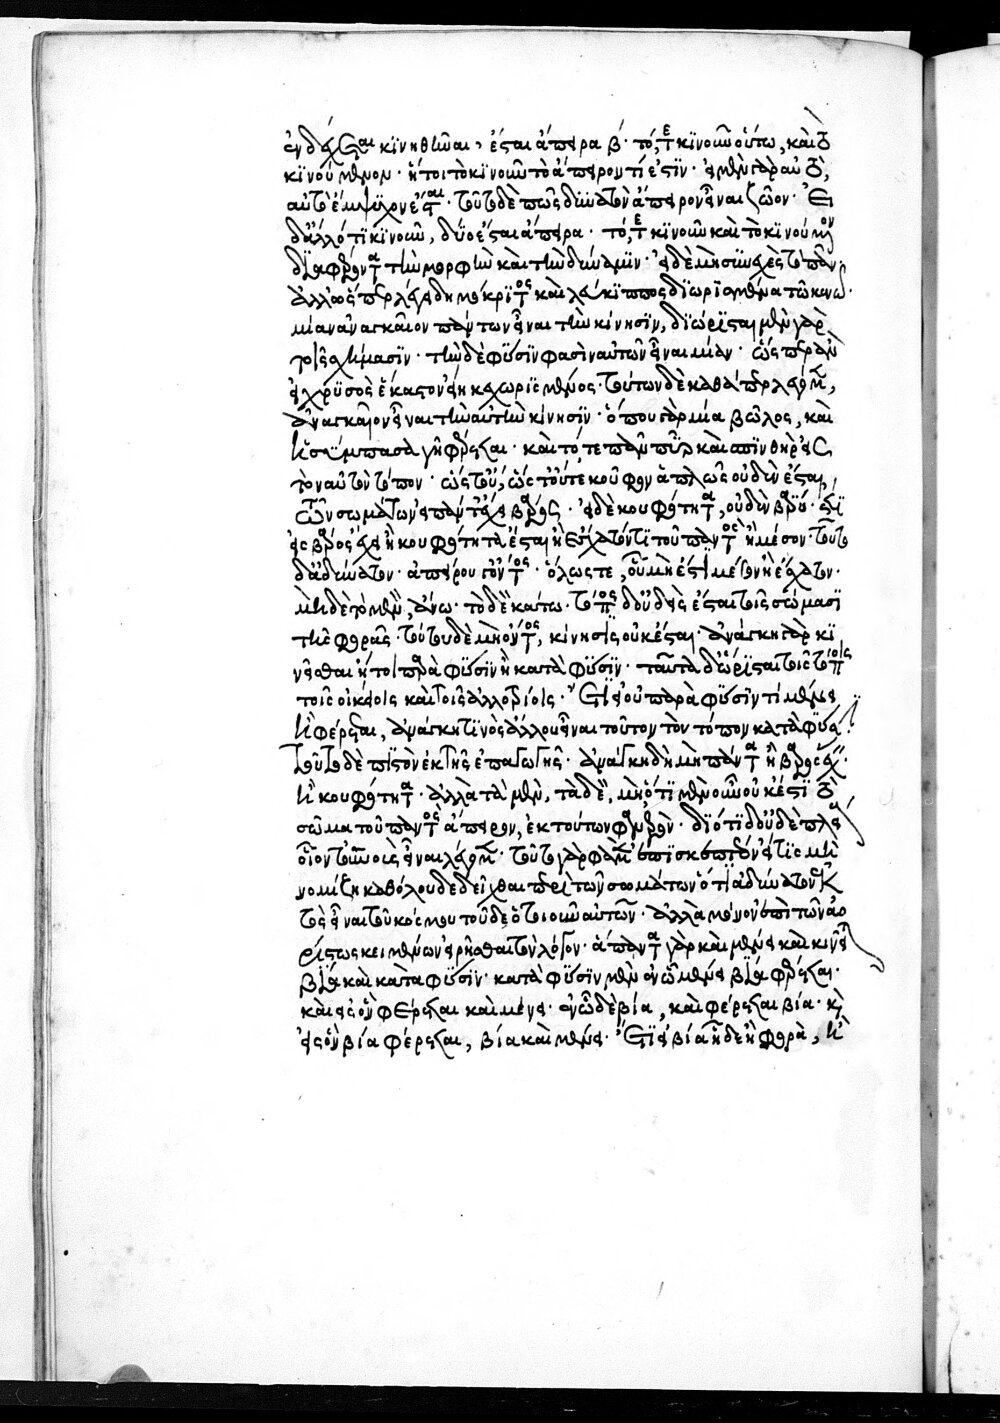 ἐνδέχεται κινηθῆναι, ἔσται ἄπειρα β· τό, τε κινοῦν οὕτω, καὶ τὸ
κινούμενον· ἤτοι τὸ κινοῦν τὸ ἄπειρον τί ἐστιν· εἰ μὲν γὰρ αὐτὸ,
αὐτὸ ἔμψυχον ἔσται· τοῦτο δὲ πῶς δυνατὸν ἄπειρον εἶναι ζῶον· Εἰ
δ' ἄλλό τι κινοῦν, δύο ἔσται ἄπειρα· τό, τε κινοῦν καὶ τὸ κινούμενον
διαφέροντα τὴν μορφὴν καὶ τὴν δύναμιν· εἰ δὲ μὴ συνεχὲς τὸ πᾶν·
ἀλλ' ὥσπερ λέγει δημόκριτος καὶ λεύκιππος διωρισμένα τῶ κενῶ·
μίαν ἀναγκαῖον πάντων εἶναι τὴν κίνησιν, διώρισται μὲν γὰρ
τοῖς σχήμασιν· τὴν δὲ φύσιν φασὶν αὐτῶν εἶναι μίαν· ὥσπερ ἂν
εἰ χρυσὸς ἕκαστον εἴη κεχωρισμένος· τούτων δὲ καθάπερ λέγομεν,
ἀναγκαῖον εἶναι τὴν αὐτὴν κίνησιν· ὅπου γὰρ μία βῶλος, καὶ
ἡ σύμπασα γῆ φέρεται· καὶ τό, τε πᾶν πῦρ καὶ σπινθὴρ εἰς
τὸν αὐτὸν τόπον· ὥστε οὔτε κοῦφον ἁπλῶς οὐδὲν ἔσται,
τῶν σωμάτων εἰ πάντ' ἔχει βάρος· εἰ δὲ κουφότητα, οὐδὲν βαρύ· ἔτι
εἰ βάρος ἔχει ἢ κουφότητα ἔσται ἢ ἔσχατόν τι τοῦ παντὸς ἢ μέσον· τοῦτο
δ' ἀδύνατον· ἀπείρου γ' ὄντος· ὅλως τε, οὗ μή ἐστι μέσον ἢ ἔσχατον·
μηδὲ τὸ μὲν, ἄνω· τὸ δὲ κάτω· τόπος δ' οὐδεὶς ἔσται τοῖς σώμασι
τῆς φορᾶς· τούτου δὲ μὴ ὄντος, κίνησις οὐκ ἔσται· ἀνάγκη γὰρ κι
νεῖσθαι ἤτοι παρὰ φύσιν ἢ κατὰ φύσιν· ταῦτα δ' ὥρισται τοῖς τόποις
τοῖς οἰκείοις καὶ τοῖς ἀλλοτρίοις· Ἔτι εἰ οὗ παρὰ φύσιν τί μένει
ἢ φέρεται, ἀνάγκη τινὸς ἄλλου εἶναι τοῦτον τὸν τόπον κατὰ φύσιν·
τοῦτο δὲ πιστὸν ἐκ τῆς ἐπαγωγῆς· ἀνάγκη δὴ μὴ πάντα ἢ βάρος ἔχειν
ἢ κουφότητα· ἀλλὰ τὰ μὲν, τὰ δὲ, μή, ὅτι μὲν οὖν οὐκ ἔστι τὸ
σῶμα τοῦ παντὸς ἄπειρον, ἐκ τούτων φανερόν· διότι δ' οὐδὲ πλεί
οῦς οἷόν τε οὐρανοὺς εἶναι λέγομεν· τοῦτο γὰρ φαμὲν ἐπισκεπτέον εἴ τις μὴ
νομίζει καθόλου δεδεῖχθαι περὶ τῶν σωμάτων ὅτι ἀδύνατον ἐκ
τὸς εἶναι τοῦ κόσμου τοῦδε ὁτιοῦν αὐτῶν· ἀλλὰ μόνον ἐπὶ τῶν ἀο
ρίστως κειμένων εἰρῆσθαι τὸν λόγον· ἅπαντα γὰρ καὶ μένει καὶ κινεῖται
βία καὶ κατὰ φύσιν· κατὰ φύσιν μὲν ἐν ᾧ μένει βία φέρεται·
καὶ εἰς ὃν φέρεται καὶ μένει· ἐν ᾧ δὲ βία, καὶ φέρεται βία· καὶ
εἰς ὃν βία φέρεται, βία καὶ μένει· Ἔτι εἰ βία ἥδε ἡ φορὰ, ἡ